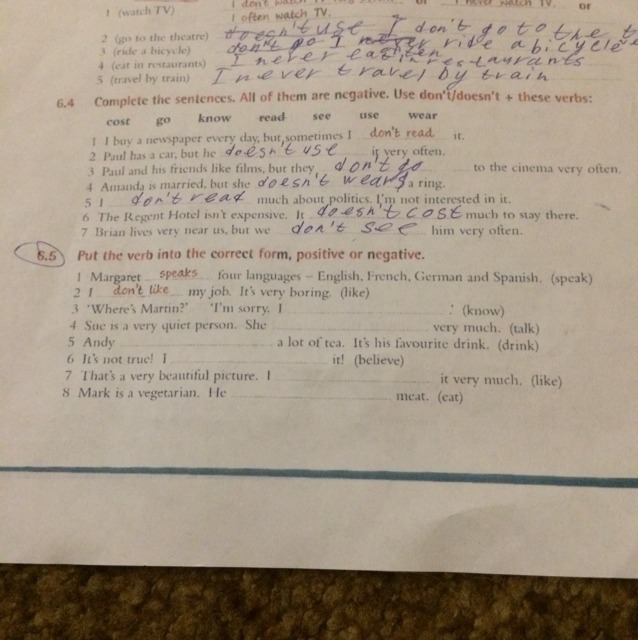 I don't watch TV. or I never watch TV. or
1 (watch TV) I often watch TV.
2 (go to the theatre) doesn't use I don't go to the t
3 (ride a bicycle) don't go I never ride a bicycle
4 (eat in restaurants) I never eat in restaurants
5 (travel by train) I never travel by train
6.4 Complete the sentences. All of them are negative. Use don't/doesn't + these verbs:
cost go know read see use wear
1 I buy a newspaper every day, but sometimes I don't read it.
2 Paul has a car, but he doesn't use it very often.
3 Paul and his friends like films, but they don't go to the cinema very often.
4 Amanda is married, but she doesn't wears a ring.
5 I don't read much about politics. I'm not interested in it.
6 The Regent Hotel isn't expensive. It doesn't cost much to stay there.
7 Brian lives very near us, but we don't see him very often.
6.5 Put the verb into the correct form, positive or negative.
1 Margaret speaks four languages – English, French, German and Spanish. (speak)
2 I don't like my job. It's very boring. (like)
3 'Where's Martin?' 'I'm sorry. I .' (know)
4 Sue is a very quiet person. She very much. (talk)
5 Andy a lot of tea. It's his favourite drink. (drink)
6 It's not true! I it! (believe)
7 That's a very beautiful picture. I it very much. (like)
8 Mark is a vegetarian. He meat. (eat)